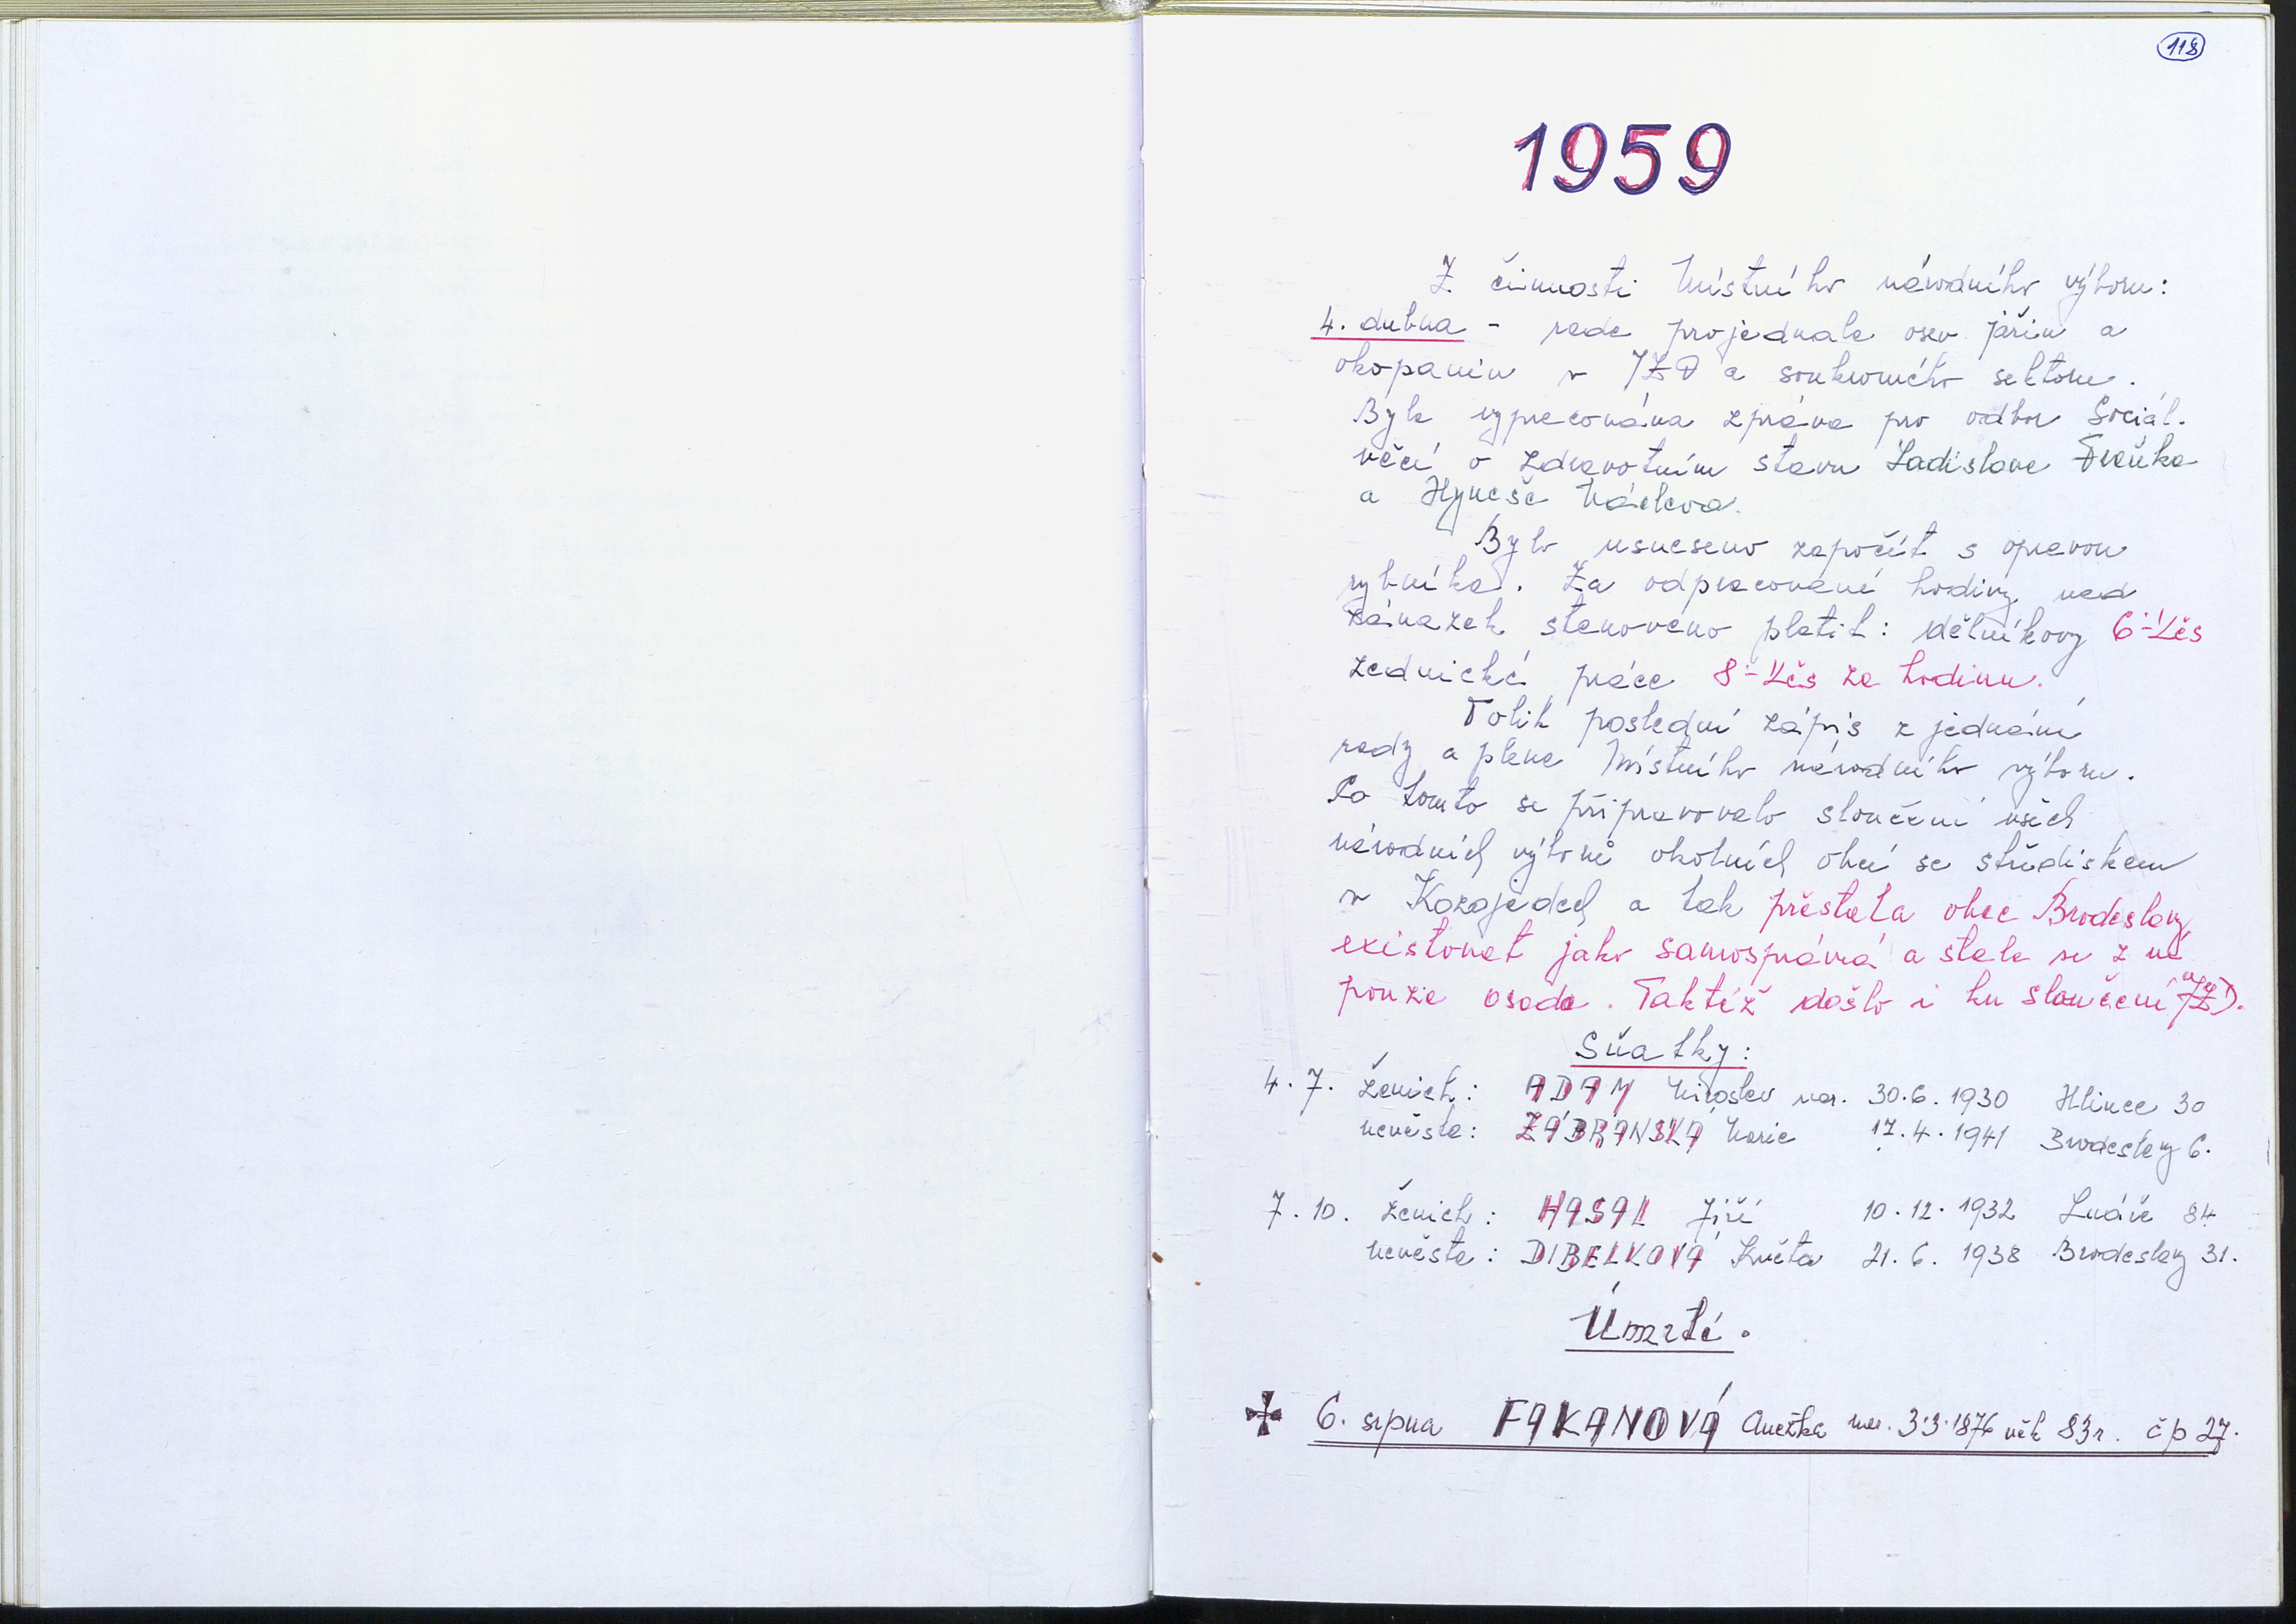 118
1959
Z činnosti Místního národního výboru:
4. dubna - rada projednala osev jařin a
okopanin v JZD a soukromého sektoru.
Byla vypracována zpráva pro odbor Sociál.
věcí o zdravotním stavu Ladislava
a Hyneše Václava.
Bylo usneseno započít s opravou
rybníka. Za odpracované hodiny nad
závazek stanoveno platit: dělníkovy 6.- Kčs
zednické práce 8.- Kčs za hodinu.
Tolik poslední zápis z jednání
rady a plena Místního národního výboru.
Po tomto se připravovalo sloučení všech
národních výborů okolních obcí se střediskem
v Kozojedech a tak přestala obec Brodeslavy
existovat jako samosprávná a stala se z ní
pouze osada. Taktéž došlo i ku sloučení JZD.
Sňatky:
4. 7. ženich: ADAM Miroslav nar. 30.6.1930 Hlince 30
nevěsta: ZÁBRANSKÁ Marie 17.4.1941 Brodeslavy 6.
7. 10. ženich: HASAL Jiří 10.12.1932 84
nevěsta: DIBELKOVÁ Květa 21.6.1938 Brodeslavy 31.
Úmrtí.
6. srpna FAKANOVÁ Anežka nar. 3.3.1876 věk 83 r. čp 27.